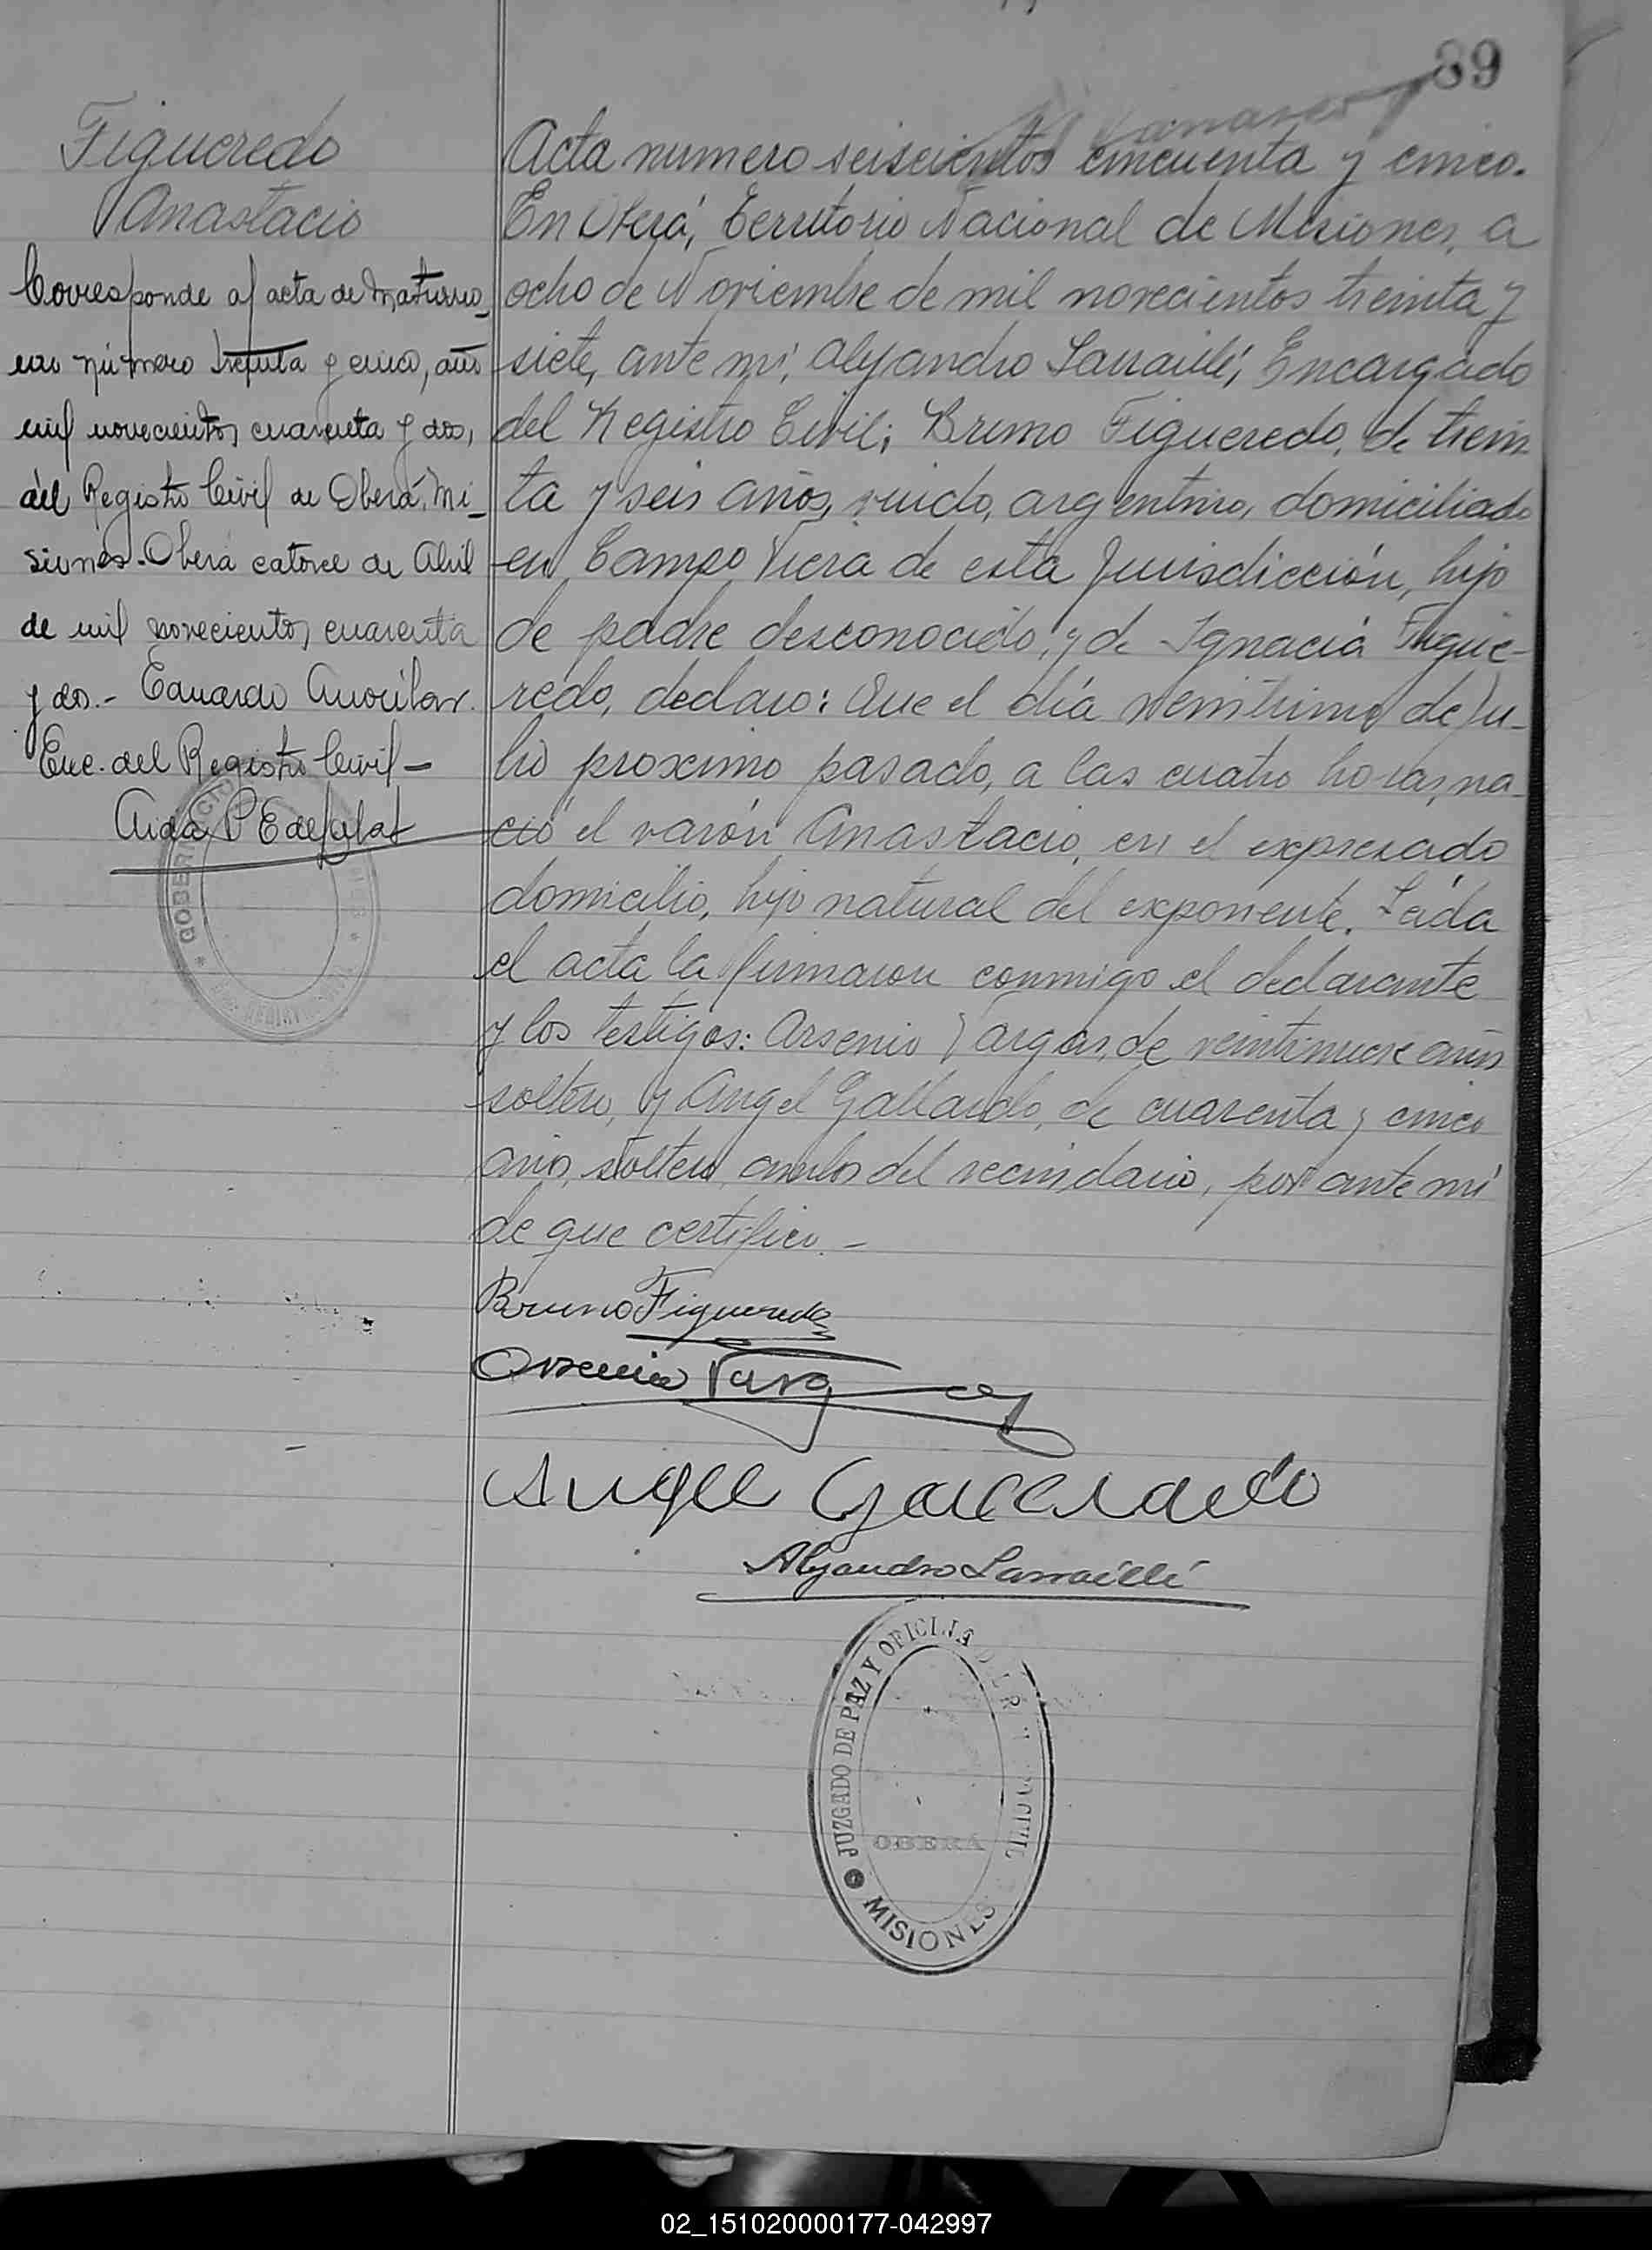 89
Figueredo
Anastacio
Corresponde al acta de matrimo_
nio número treinta y cinco, año
mil novecientos cuarenta y dos,
del Registro Civil de Oberá, Mi_
siones.- Oberá catorce de Abril
de mil novecientos cuarenta
y dos.- Eduardo
Enc. del Registro Civil -
Aida P E de
GOBERNACION
Acta numero seiscientos cincuenta y cinco.
En Oberá, Territorio Nacional de Misiones, a
ocho de Noviembre de mil novecientos treinta y
siete, ante mi, Alejandro Sarraillé, Encargado
del Registro Civil; Bruno Figueredo, de trein
ta y seis años, viudo, argentino, domiciliado
en Campo Viera de esta Jurisdicción, hijo
de padre desconocido, y de Ignacia Figue-
redo, declaro: Que el día de Ju_
lio proximo pasado, a las cuatro horas, na_
ció el varón Anastacio, en el expresado
domicilio, hijo natural del exponente. Leida
el acta la firmaron conmigo el declarante
y los testigos: Arsenio Vargas, de veintinueve años
soltero, y Angel Gallardo, de cuarenta y cinco
años, soltero, ambos del vecindario, por ante mi
de que certifico.-
Bruno Figueredo
Arsenio Vargas
Angel Gallardo
Alejandro Sarraillé
JUZGADO DE PAZ Y OFICINA DEL REGISTRO CIVIL
OBERA
MISIONES
02_151020000177-042997